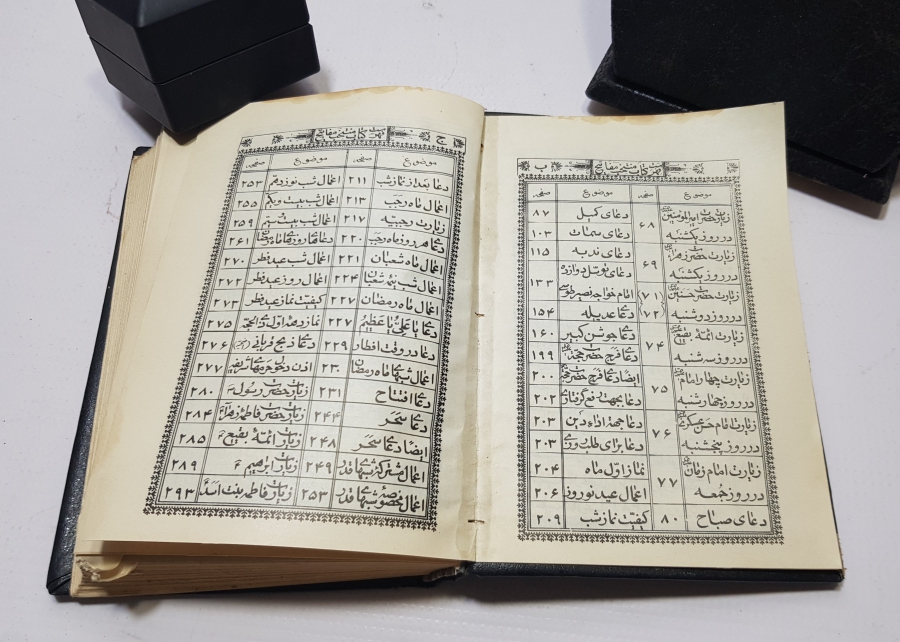 ب
فهرست کتاب منتخب مفاتیح
موضوع صفحه موضوع صفحه
زیارت حضرت امیرالمؤمنین
در روز یکشنبه ۶۸
زیارت حضرت زهرا
در روز یکشنبه ۶۹
زیارت حضرت حسنین (۷۱)
در روز دوشنبه (۷۲)
زیارت ائمۀ بقیع
در روز سه شنبه ۷۴
زیارت چهار امام
در روز چهارشنبه ۷۵
زیارت امام حسن عسکری
در روز پنجشنبه ۷۶
زیارت امام زمان
در روز جمعه ۷۷
دعای صباح ۸۰
دعای کمیل ۸۷
دعای سمات ۱۰۳
دعای ندبه ۱۱۵
دعای توسل دوازده
امام خواجه نصیر طوسی ۱۳۳
دعا عدیله ۱۵۴
دعای جوشن کبیر ۱۶۰
دعای فرج حضرت حجة ۱۹۹
ایضا دعای فرج حضرت حجة ۲۰۰
دعا بجهت رفع گرفتاری ۲۰۲
دعا جهة اداء دین ۲۰۳
دعا برای طلب روزی ۲۰۳
نماز اول ماه ۲۰۴
اعمال عید نوروز ۲۰۶
کیفیت نماز شب ۲۰۹
ج
فهرست کتاب منتخب مفاتیح
موضوع صفحه موضوع صفحه
دعا بعد از نماز شب ۲۱۱
اعمال ماه رجب ۲۱۳
زیارت رجبیه ۲۱۷
دعای هر روز ماه رجب ۲۲۰
اعمال ماه شعبان ۲۲۱
اعمال شب نیمه شعبان ۲۲۴
اعمال ماه رمضان ۲۲۷
دعای یا علی یا عظیم ۲۲۷
دعا در وقت افطار ۲۲۹
اعمال شبهای ماه رمضان ۲۳۰
دعای افتتاح ۲۳۱
دعای سحر ۲۴۴
ایضا دعای سحر ۲۴۸
اعمال مشترکه شبهای قدر ۲۴۹
اعمال مخصوصه شبهای قدر ۲۵۳
اعمال شب نوزدهم ۲۵۳
اعمال شب بیست و یکم ۲۵۵
اعمال شب بیست و سیم ۲۵۹
۲۶۱
اعمال شب عید فطر ۲۷۰
اعمال روز عید فطر ۲۷۲
کیفیت نماز عید فطر ۲۷۳
نماز دهۀ اول ذی الحجه ۲۷۵
دعای ذبح قربانی ۲۷۶
اذن دخول حرمهای شریفه ۲۷۷
زیارت حضرت رسول ۲۸۰
زیارت حضرت فاطمه زهرا ۲۸۴
زیارت ائمۀ بقیع ۲۸۵
زیارت ابراهیم ۲۸۹
زیارت فاطمه بنت اسد ۲۹۳